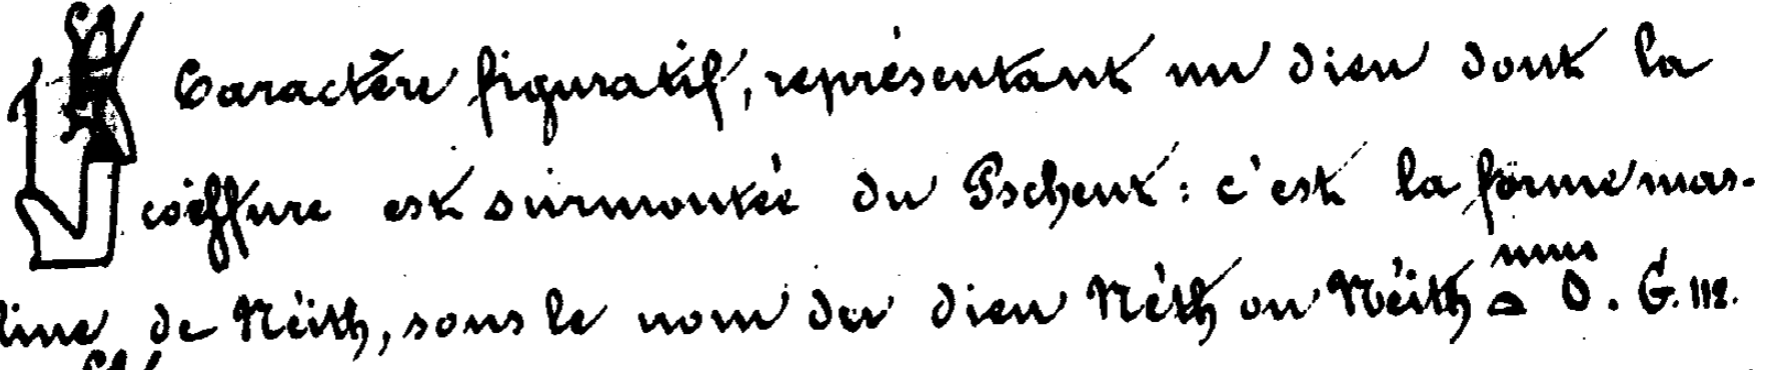 Caractère figuratif, représentant un dieu dont la
coiffure est surmontée du Pschent : c'est la forme mas-
line de Néith, sous le nom du dieu Néth ou Néith 𓈖𓏏 D. G. 112.